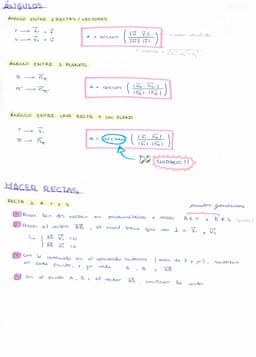 ÁNGULOS
ÁNGULO ENTRE 2 RECTAS / VECTORES
r → v⃗r = v⃗
s → v⃗s = u⃗
α = arccos ( |u⃗ · v⃗| / |u⃗| · |v⃗| )
→ valor absoluto
ÁNGULO ENTRE 2 PLANOS
π → n⃗π
π' → n⃗π'
α = arccos ( |n⃗π · n⃗π'| / |n⃗π| · |n⃗π'| )
ÁNGULO ENTRE UNA RECTA Y UN PLANO
r → v⃗r
π → n⃗π
α = arcsen ( |v⃗r · n⃗π| / |v⃗r| · |n⃗π| )
CUIDADO!!
HACER RECTAS
RECTA ⊥ A r Y s
puntos genéricos
Hacer las dos rectas en paramétricas y sacar A ∈ r y B ∈ s
Hacer el vector AB⃗, el cual tiene que ser ⊥ a v⃗r y v⃗s
AB⃗ · v⃗r = 0
AB⃗ · v⃗s = 0
Con lo obtenido en el apartado anterior (valor de λ y μ), sustituir
en cada punto, y ya sale A, B y AB⃗
Con el punto A o B y el vector AB⃗, construir la recta